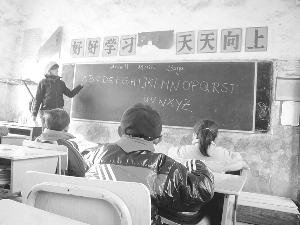 好好学习 天天向上
ABCDEFGHIJKLMNOPQRST
UVWXYZ